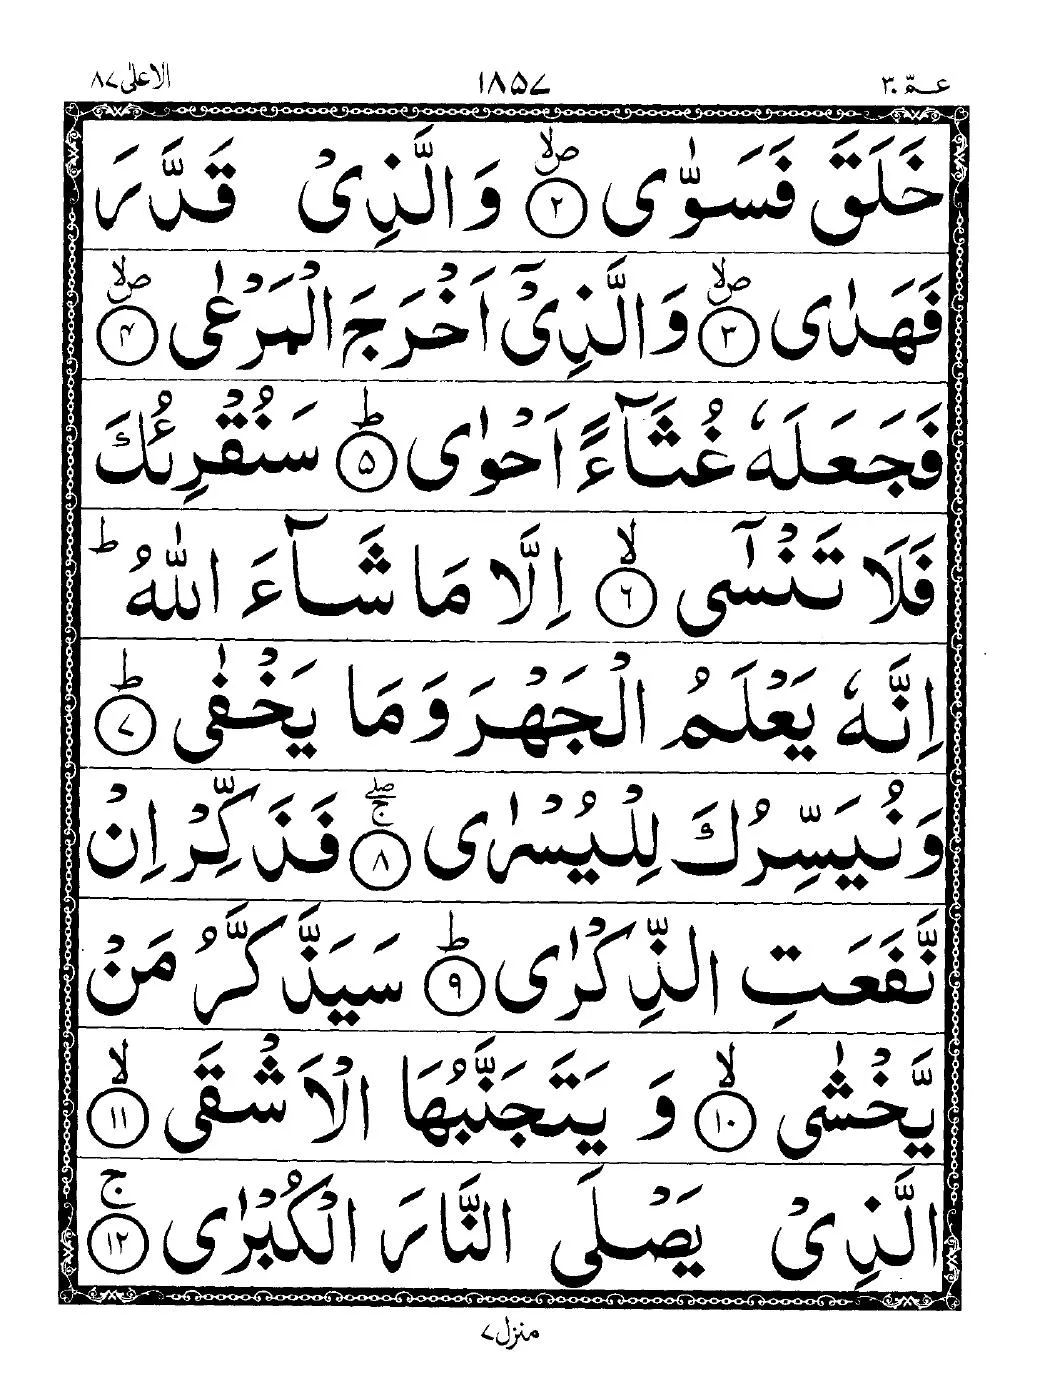 عـمّ ٣٠ ١٨٥٧ الاعلىٰ ٨٧
خَلَقَ فَسَوّٰى ۪ۙۙ ﴿۲﴾ وَالَّذِىْ قَدَّرَ
فَهَدٰى ۪ۙۙ ﴿۳﴾ وَالَّذِىْۤ اَخْرَجَ الْمَرْعٰى ۪ۙۙ ﴿۴﴾
فَجَعَلَهٗ غُثَآءً اَحْوٰى ؕ ﴿۵﴾ سَنُقْرِئُكَ
فَلَا تَنْسٰٓى ۙ ﴿۶﴾ اِلَّا مَا شَآءَ اللّٰهُ ؕ
اِنَّهٗ يَعْلَمُ الْجَهْرَ وَمَا يَخْفٰى ؕ ﴿۷﴾
وَنُيَسِّرُكَ لِلْيُسْرٰى ۖۚ ﴿۸﴾ فَذَكِّرْ اِنْ
نَّفَعَتِ الذِّكْرٰى ؕ ﴿۹﴾ سَيَذَّكَّرُ مَنْ
يَّخْشٰى ۙ ﴿۱۰﴾ وَ يَتَجَنَّبُهَا الْاَشْقَى ۙ ﴿۱۱﴾
الَّذِىْ يَصْلَى النَّارَ الْكُبْرٰى ۚ ﴿۱۲﴾
منزل ٧